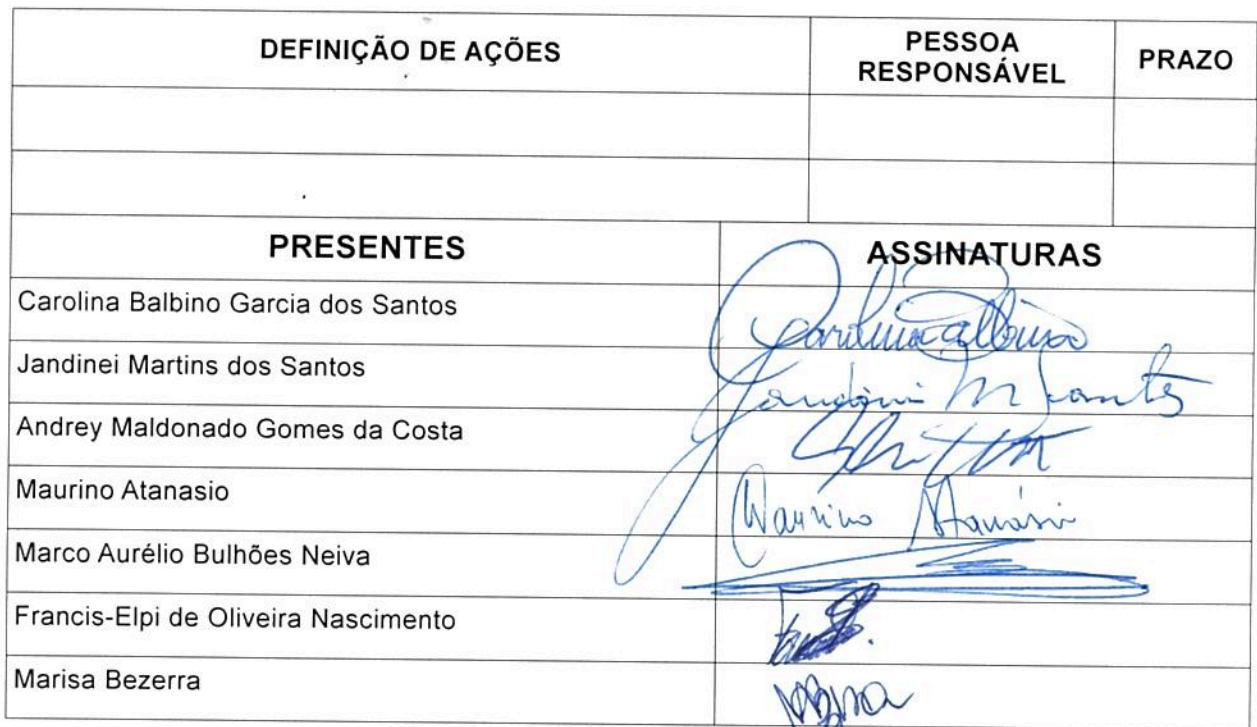 DEFINIÇÃO DE AÇÕES
PESSOA
RESPONSÁVEL
PRAZO
PRESENTES
ASSINATURAS
Carolina Balbino Garcia dos Santos
Jandinei Martins dos Santos
Jandinei M Santos
Andrey Maldonado Gomes da Costa
Maurino Atanasio
Maurino Atanásio
Marco Aurélio Bulhões Neiva
Francis-Elpi de Oliveira Nascimento
Marisa Bezerra